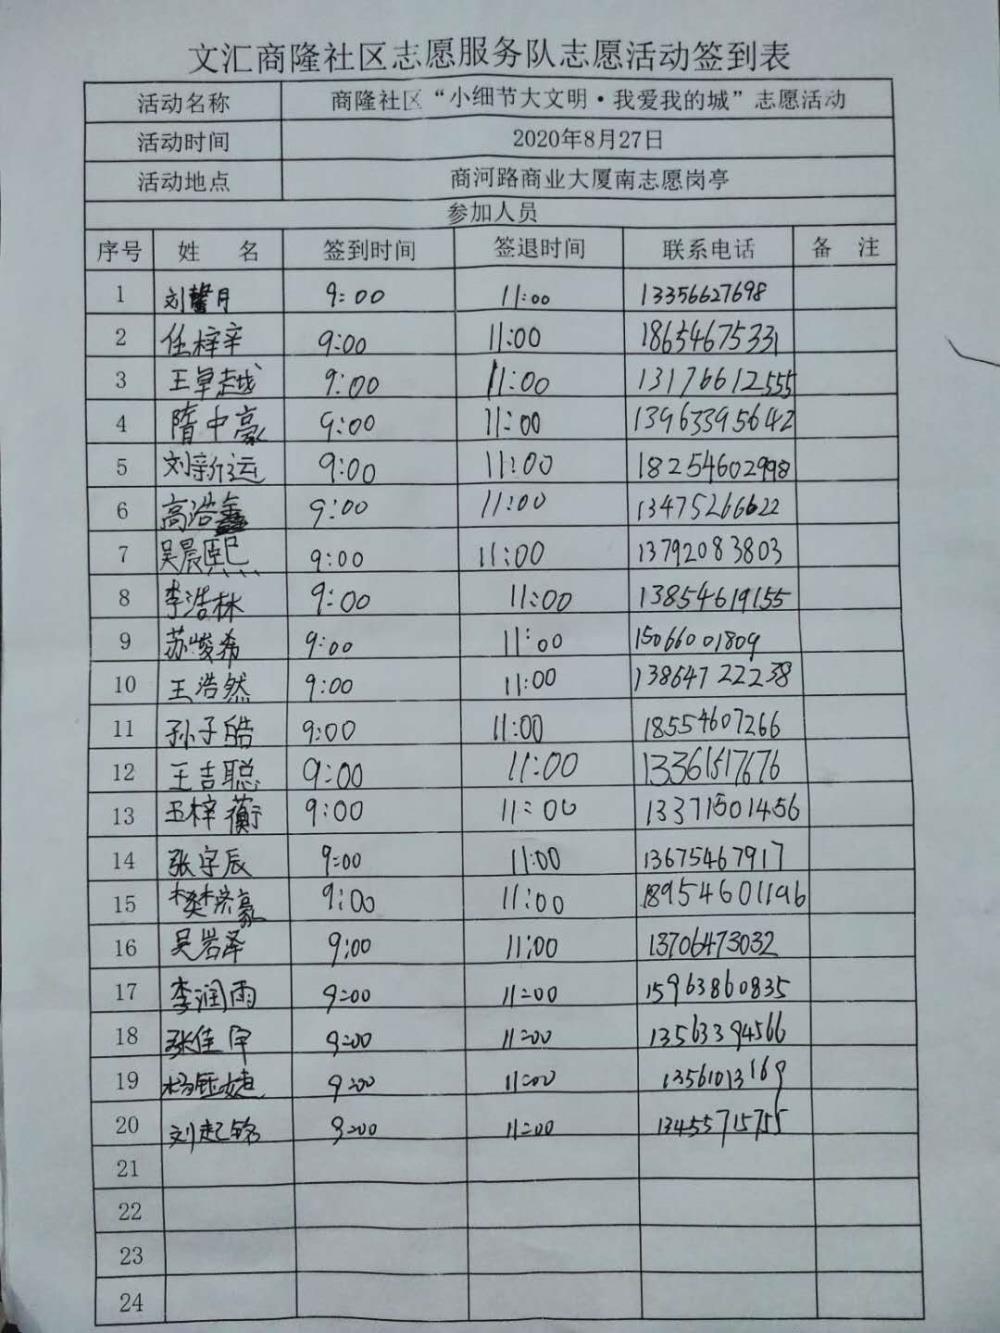 文汇商隆社区志愿服务队志愿活动签到表
活动名称 商隆社区“小细节大文明·我爱我的城”志愿活动
活动时间 2020年8月27日
活动地点 商河路商业大厦南志愿岗亭
参加人员
序号 姓 名 签到时间 签退时间 联系电话 备 注
1 刘馨月 9:00 11:00 13356627698
2 任梓辛 9:00 11:00 18654675331
3 王卓越 9:00 11:00 13176612555
4 隋中豪 9:00 11:00 13963395642
5 刘新运 9:00 11:00 18254602998
6 高浩鑫 9:00 11:00 13475266622
7 吴晨熙 9:00 11:00 13792083803
8 李浩林 9:00 11:00 13854619155
9 苏峻希 9:00 11:00 15066001809
10 王浩然 9:00 11:00 13864722238
11 孙子皓 9:00 11:00 18554607266
12 王吉聪 9:00 11:00 13361517676
13 王梓蘅 9:00 11:00 13371501456
14 张宇辰 9:00 11:00 13675467917
15 樊洪豪 9:00 11:00 18954601196
16 吴岩泽 9:00 11:00 13706473032
17 李润雨 9:00 11:00 15963860835
18 张佳宇 9:00 11:00 13563394566
19 杨钰婕 9:00 11:00 13561013169
20 刘起铭 9:00 11:00 13455715755
21
22
23
24